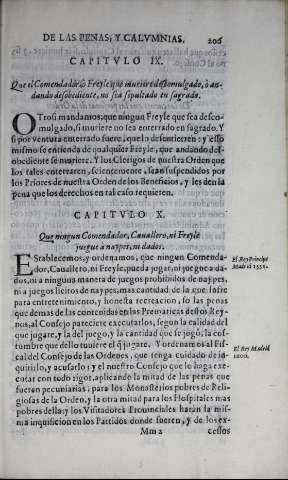 DE LAS PENAS, Y CALVMNIAS. 206
CAPITVLO IX.
Que el Comendador, ò Freyle que muriere descomulgado, ò an-
dando desobediente, no sea sepultado en sagrado.
OTrosi mandamos, que ningun Freyle que sea desco-
mulgado, si muriere no sea enterrado en sagrado. Y
si por ventura enterrado fuere, que lo desentierren; y esso
mismo se entienda de qualquier Freyle, que andando des-
obediente se muriere. Y los Clerigos de nuestra Orden que
los tales enterraren, scientemente, sean suspendidos por
los Priores de nuestra Orden de los Beneficios, y les den la
pena que los derechos en tal caso requieren.
CAPITVLO X.
Que ningun Comendador, Cavallero, ni Freyle
juegue à naypes, ni dados.
EStablecemos, y ordenamos, que ningun Comenda-
dor, Cavallero, ni Freyle, pueda jugar, ni juegue a da-
dos, ni a ninguna manera de juegos prohibidos de naypes,
ni a juegos licitos de naypes, mas cantidad de la que sufre
para entretenimiento, y honesta recreacion, so las penas
que demas de las contenidas en las Prematicas destos Rey-
nos, al Consejo pareciere executarlos, segun la calidad del
que jugare, y la del juego, y la cantidad que se jugò, la cos-
tumbre que dello tuviere el q̃ jugare. Y ordenamos al Fis-
cal del Consejo de las Ordenes, que tenga cuidado de in-
quirirlo, y acusarlo; y el nuestro Consejo que lo haga exe-
cutar con todo rigor, aplicando la mitad de las penas que
fueren pecuniarias, para los Monasterios pobres de Reli-
giosas de la Orden, y la otra mitad para los Hospitales mas
pobres della; y los Visitadores Provinciales haràn la mis-
ma inquisicion en los Partidos donde fueren, y de los ex-
Mm 2 cessos
El Rey Principe
Madrid 1551.
El Rey Madrid
1600.